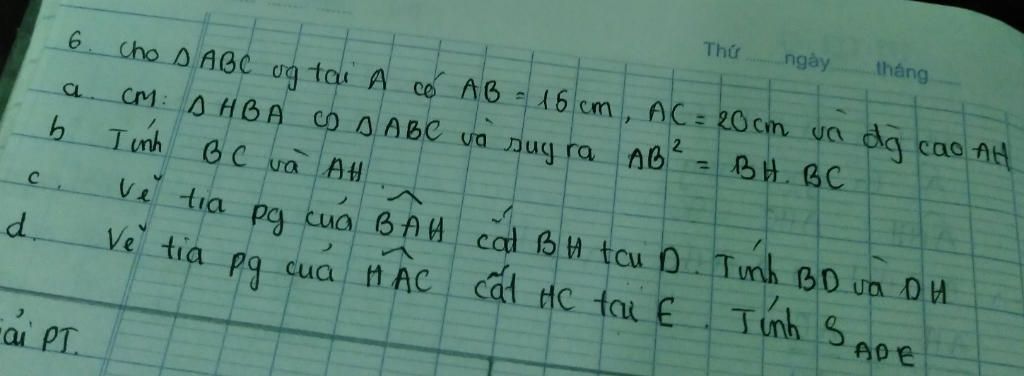 Thứ ...... ngày ...... tháng ......
6. Cho Δ ABC vg tại A có AB = 15 cm, AC = 20 cm và đg cao AH
a. CM: Δ HBA ∽ Δ ABC và suy ra AB² = BH. BC
b Tính BC và AH.
c. Vẽ tia pg của BAH cắt BH tại D. Tính BD và DH
d. Vẽ tia pg của HAC cắt HC tại E. Tính S ADE
ải PT.